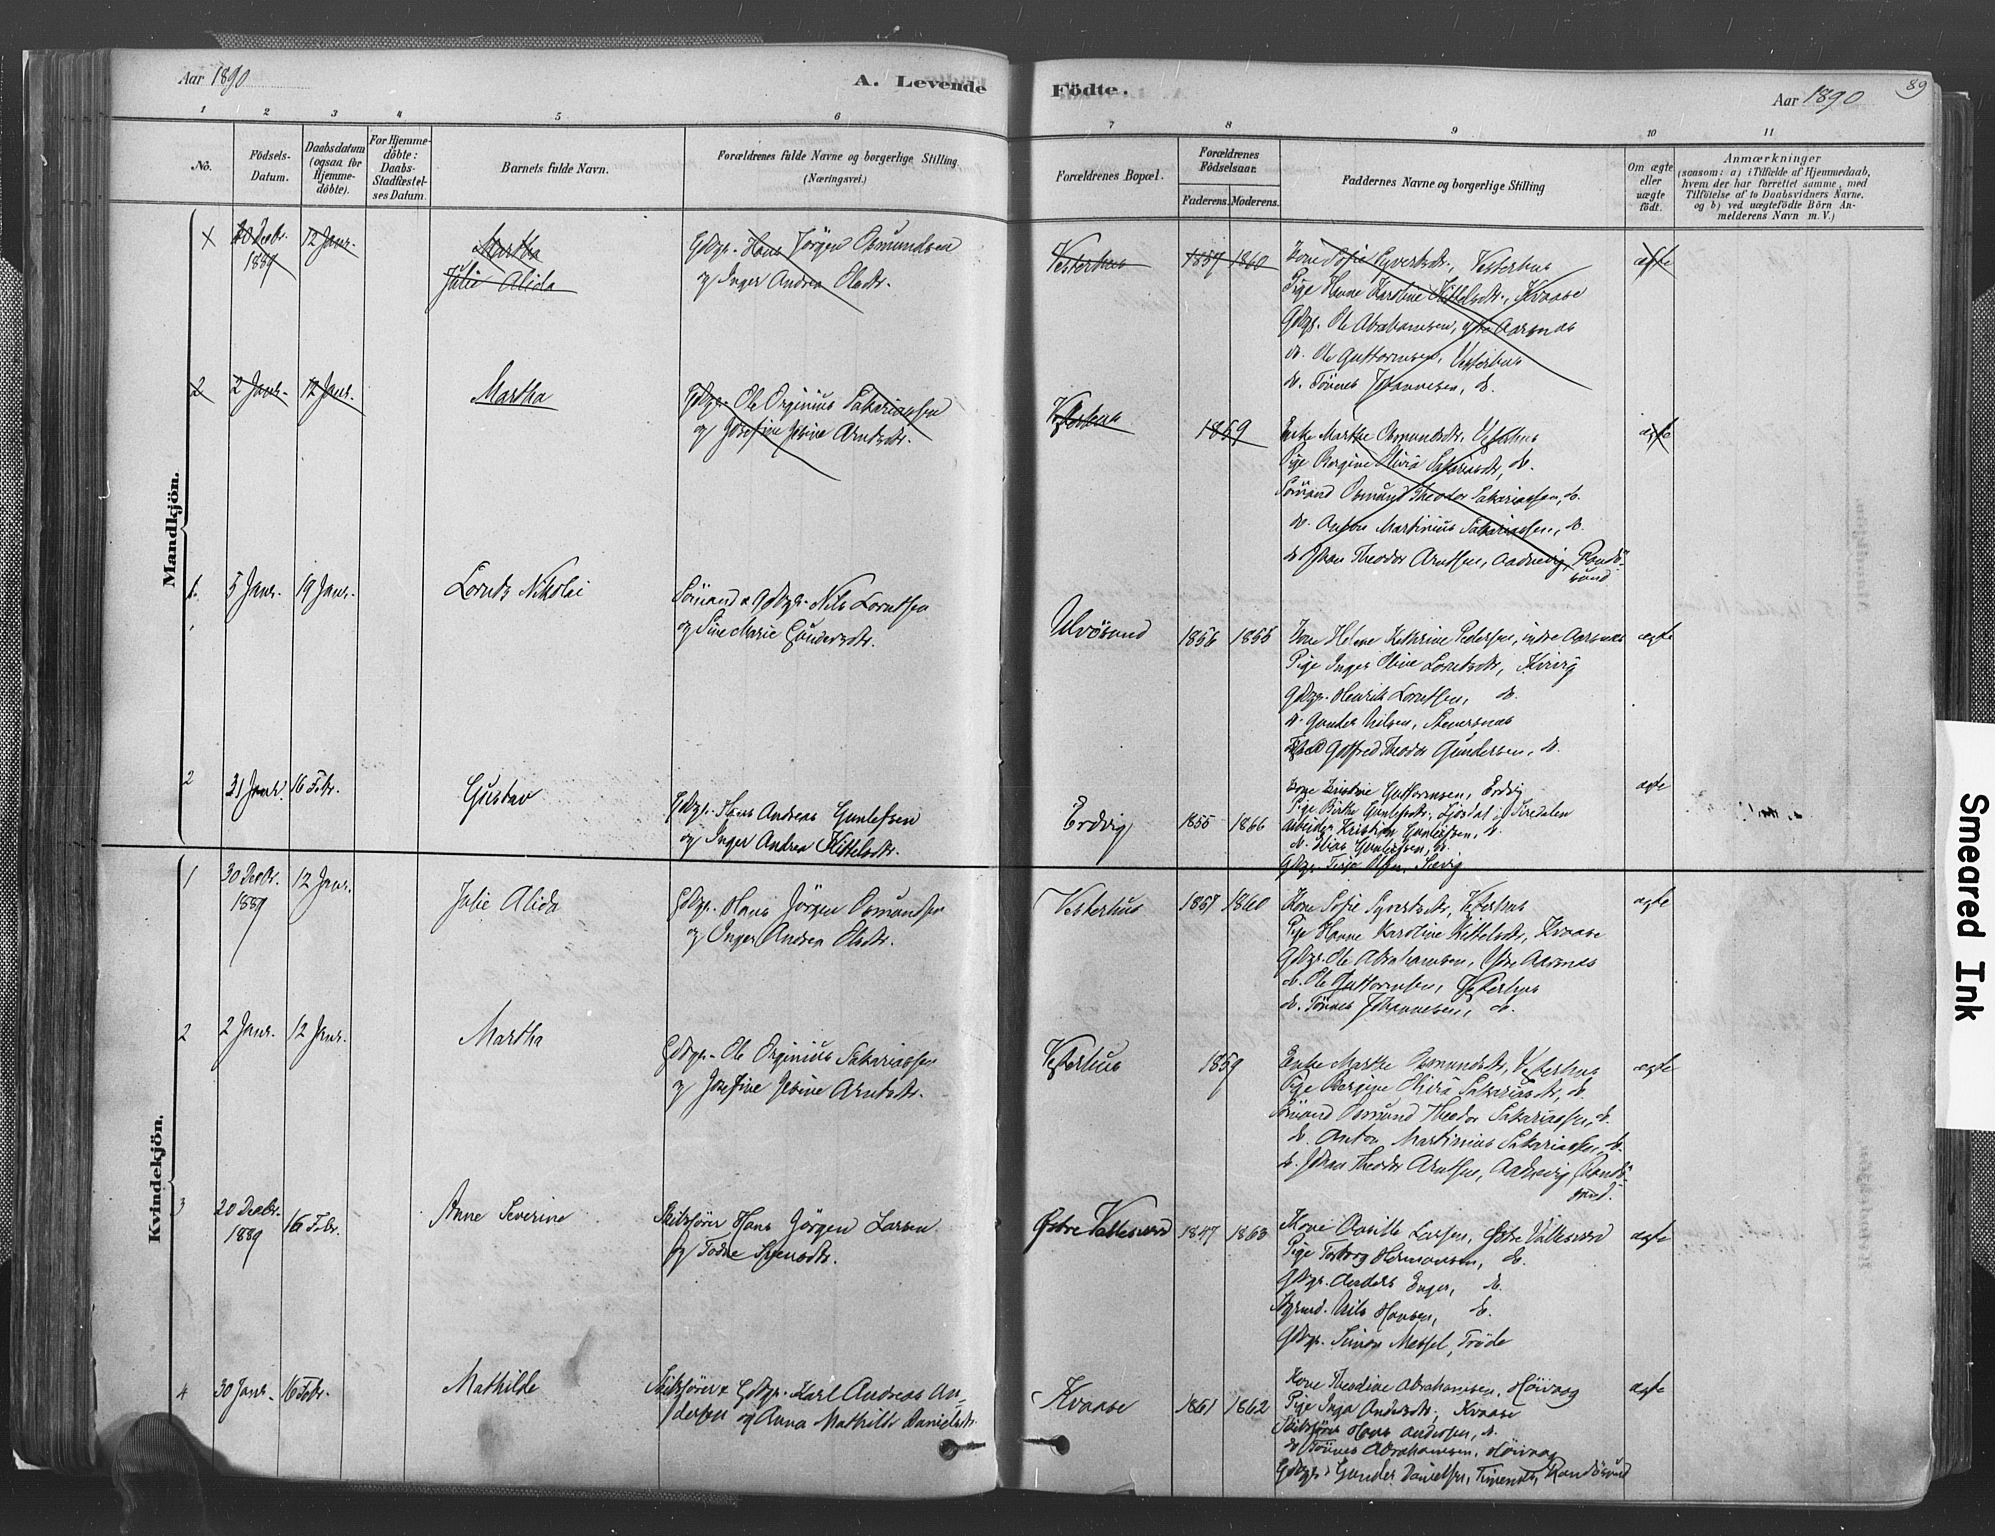 Aar 1890
A. Levende
Födte.
Aar 1890
89
1 2 3 4 5 6 7 8 9 10 11
No.
Födsels-
Datum.
Daabsdatum
(ogsaa for
Hjemme-
döbte).
For Hjemme-
döbte:
Daabs-
Stadfæstel-
ses Datum.
Barnets fulde Navn.
Forældrenes fulde Navne og borgerlige Stilling
(Næringsvei.)
Forældrenes Bopæl.
Forældrenes
Födselsaar.
Faderens. Moderens.
Faddernes Navne og borgerlige Stilling
Om ægte
eller
uægte
födt.
Anmærkninger
(saasom: a) i Tilfælde af Hjemmedaab,
hvem der har forrettet samme, med
Tilföielse af to Daabsvidners Navne,
og b) ved uægtefödte Börn An-
melderens Navn m. V.)
Mandkjön.
12 Janr.
1889
Martha
Julie Alida
Gdbgr. Hans Jörgen Osmundsen
og Inger Andrea Olsdtr.
Vesterhus
1857 1860
Kone Sofie Syvertsdtr., Vesterhus
Pige Hanne Karoline Kittelsdtr., Kvaase
Gdbgr. Ole Abrahamsen, ytre Aarsnes
do. Ole Guttormsen, Vesterhus
do. Tönnes Johannesen, do.
ægte
2
2 Janr.
12 Janr.
Martha
Gdbgr. Ole Orginius Sakariassen
og Josefine Jebine Arntsdtr.
Vesterhus
1859
Enke Marthe Osmundsdtr., Vesterhus
Pige Borgine Olivia Sakariasdtr., do.
Sömand Osmund Theodor Sakariassen, do.
do. Anton Martinius Sakariassen, do.
do. Johan Theodor Arntsen, Aadnevig, Randö-
sund
ægte
1.
5 Janr.
19 Janr.
Lornds Nikolai
Sömand & Gdbgr. Nils Lorntsen
og Sine Marie Gundersdtr.
Ulvösund
1856 1855
Kone Helene Kathrine Pedersen, indre Aarsnes
Pige Inger Oline Lorntsdtr., Kirvig
Gdbgr. Henrik Lorntsen, do.
do. Gunder Nilsen, Steversnes
Gotfred Theodor Gundersen, do.
ægte
2
31 Janr.
16 Febr.
Gustav
Gdbgr. Hans Andreas Gunlefsen
og Inger Andrea Kittelsdtr.
Erdvig
1855 1866
Kone Kristine Guttormsen, Erdvig
Pige Birthe Gunlefsdtr., Sjösdal i Siredalen
Arbeider Kristian Gunlefsen, do.
do. Elias Gunlefsen, do.
Gdbgr. Terje Olsen, Sævig
ægte
Kvindekjön.
1
30 Decbr.
1889
12 Janr.
Julie Alida
Gdbgr. Hans Jörgen Osmundsen
og Inger Andrea Olsdtr.
Vesterhus
1857 1860
Kone Sofie Syvertsdtr., Vesterhus
Pige Hanne Karoline Kittelsdtr., Kvaase
Gdbgr. Ole Abrahamsen, Ytre Aarsnes
do. Ole Guttormsen, Vesterhus
do. Tönnes Johannesen, do.
ægte
2
2 Janr.
12 Janr.
Martha
Gdbgr. Ole Orginius Sakariassen
og Josefine Jebine Arntsdtr.
Vesterhus
1859
Enke Marthe Osmundsdtr., Vesterhus
Pige Borgine Olivia Sakariasdtr., do.
Sömand Osmund Theodor Sakariassen, do.
do. Anton Martinius Sakariassen, do.
do. Johan Theodor Arntsen, Aadnevig, Randö-
sund.
ægte
3
20 Decbr.
1889
16 Febr.
Anne Severine
Skibsförer Hans Jörgen Larsen
og Todne Svensdtr.
Östre Vallesværd
1847 1863
Kone Larsen, Östre Vallesværd
Pige Torborg Hermansen, do.
Gdbgr. Anders Enger, do.
Nils Hansen, do.
Gdbgr. Simon Messel, Tröde
ægte
4
30 Janr.
16 Febr.
Mathilde
Skibsförer & Gdbgr. Karl Andreas An-
dersen og Anna Mathilde Danielsdtr.
Kvaase
1861 1862
Kone Theodine Abrahamsen, Höivaag
Pige Inga Andersdtr., Kvaase
Skibsförer Hans Andersen, do.
do. Tönnes Abrahamsen, Höivaag
Gdbgr. Gunder Danielsen, Timenes, Randösund
ægte
Smeared Ink